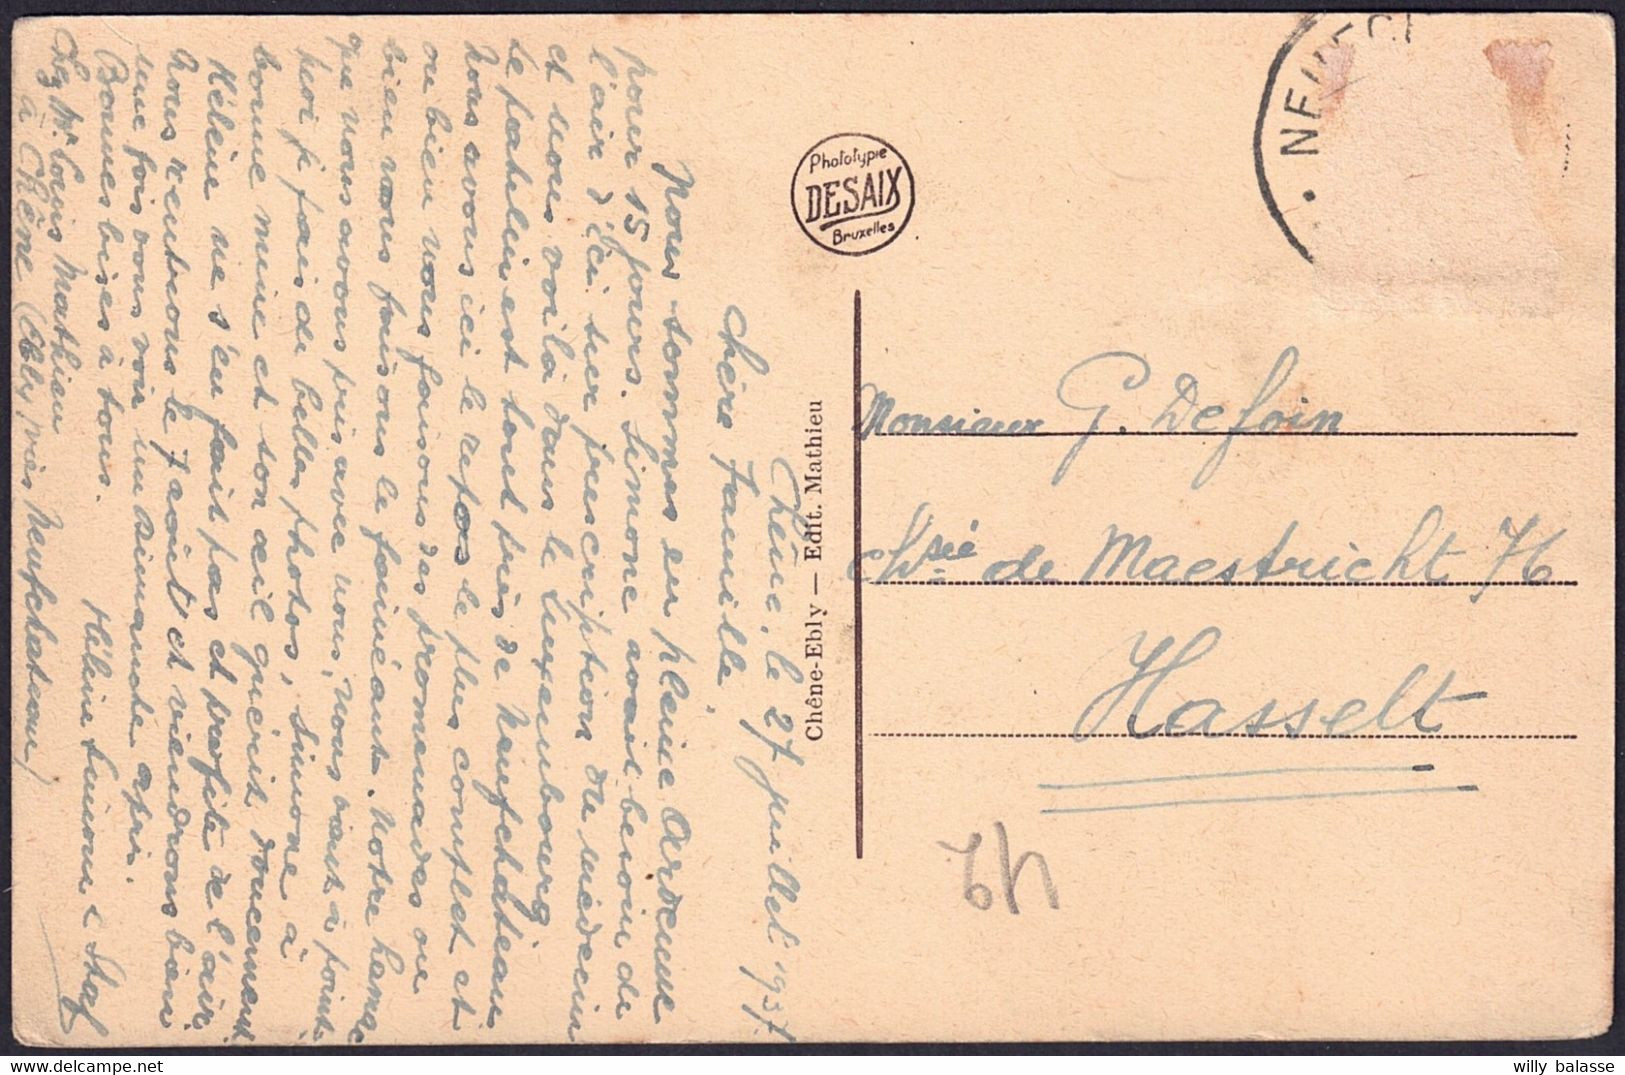 Chêne, le 27 juillet 1937.
Chère famille,
Nous sommes en pleine Ardenne
pour 15 jours. Simone avait besoin de
l'air d'ici sur prescription du médecin
et nous voilà dans le Luxembourg
Le patelin est tout près de Neufchâteau
nous avons ici le repos le plus complet et
ou bien nous faisons des promenades ou
bien nous faisons le fainéant. Notre hamac
que nous avons pris avec nous, nous vient à point
moi je fais de belles photos, Simone a
bonne mine et son œil guérit doucement
Hélène ne s'en fait pas et profite de l'air
Nous rentrons le 7 août et viendrons bien
une fois vous voir un dimanche apri.
Bonnes bises à tous.
Hélène Simone & Staf
Chez Mr Louis Mathieu
à Chêne (Ebly près Neufchateau)
Phototypie
DESAIX
Bruxelles
Chêne-Ebly — Edit. Mathieu
Monsieur G. Defoin
Chsée de Maestricht 76
Hasselt
willy balasse